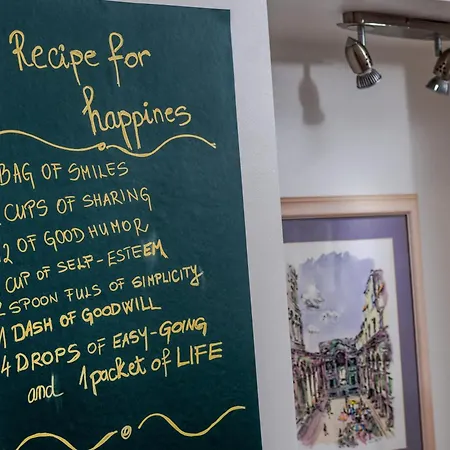 Recipe for
happines
BAG OF SMILES
CUPS OF SHARING
2 OF GOOD HUMOR
CUP OF SELF-ESTEEM
SPOON FULS OF SIMPLICITY
1 DASH OF GOODWILL
4 DROPS OF EASY-GOING
and 1 packet of LIFE